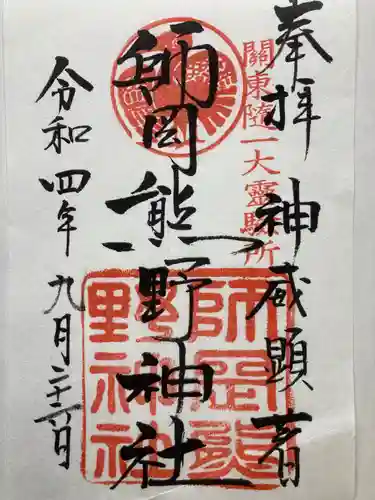 奉拝 神威顕著
關東随一大靈驗所
師岡熊野神社
師岡熊野神社
令和四年九月二十一日